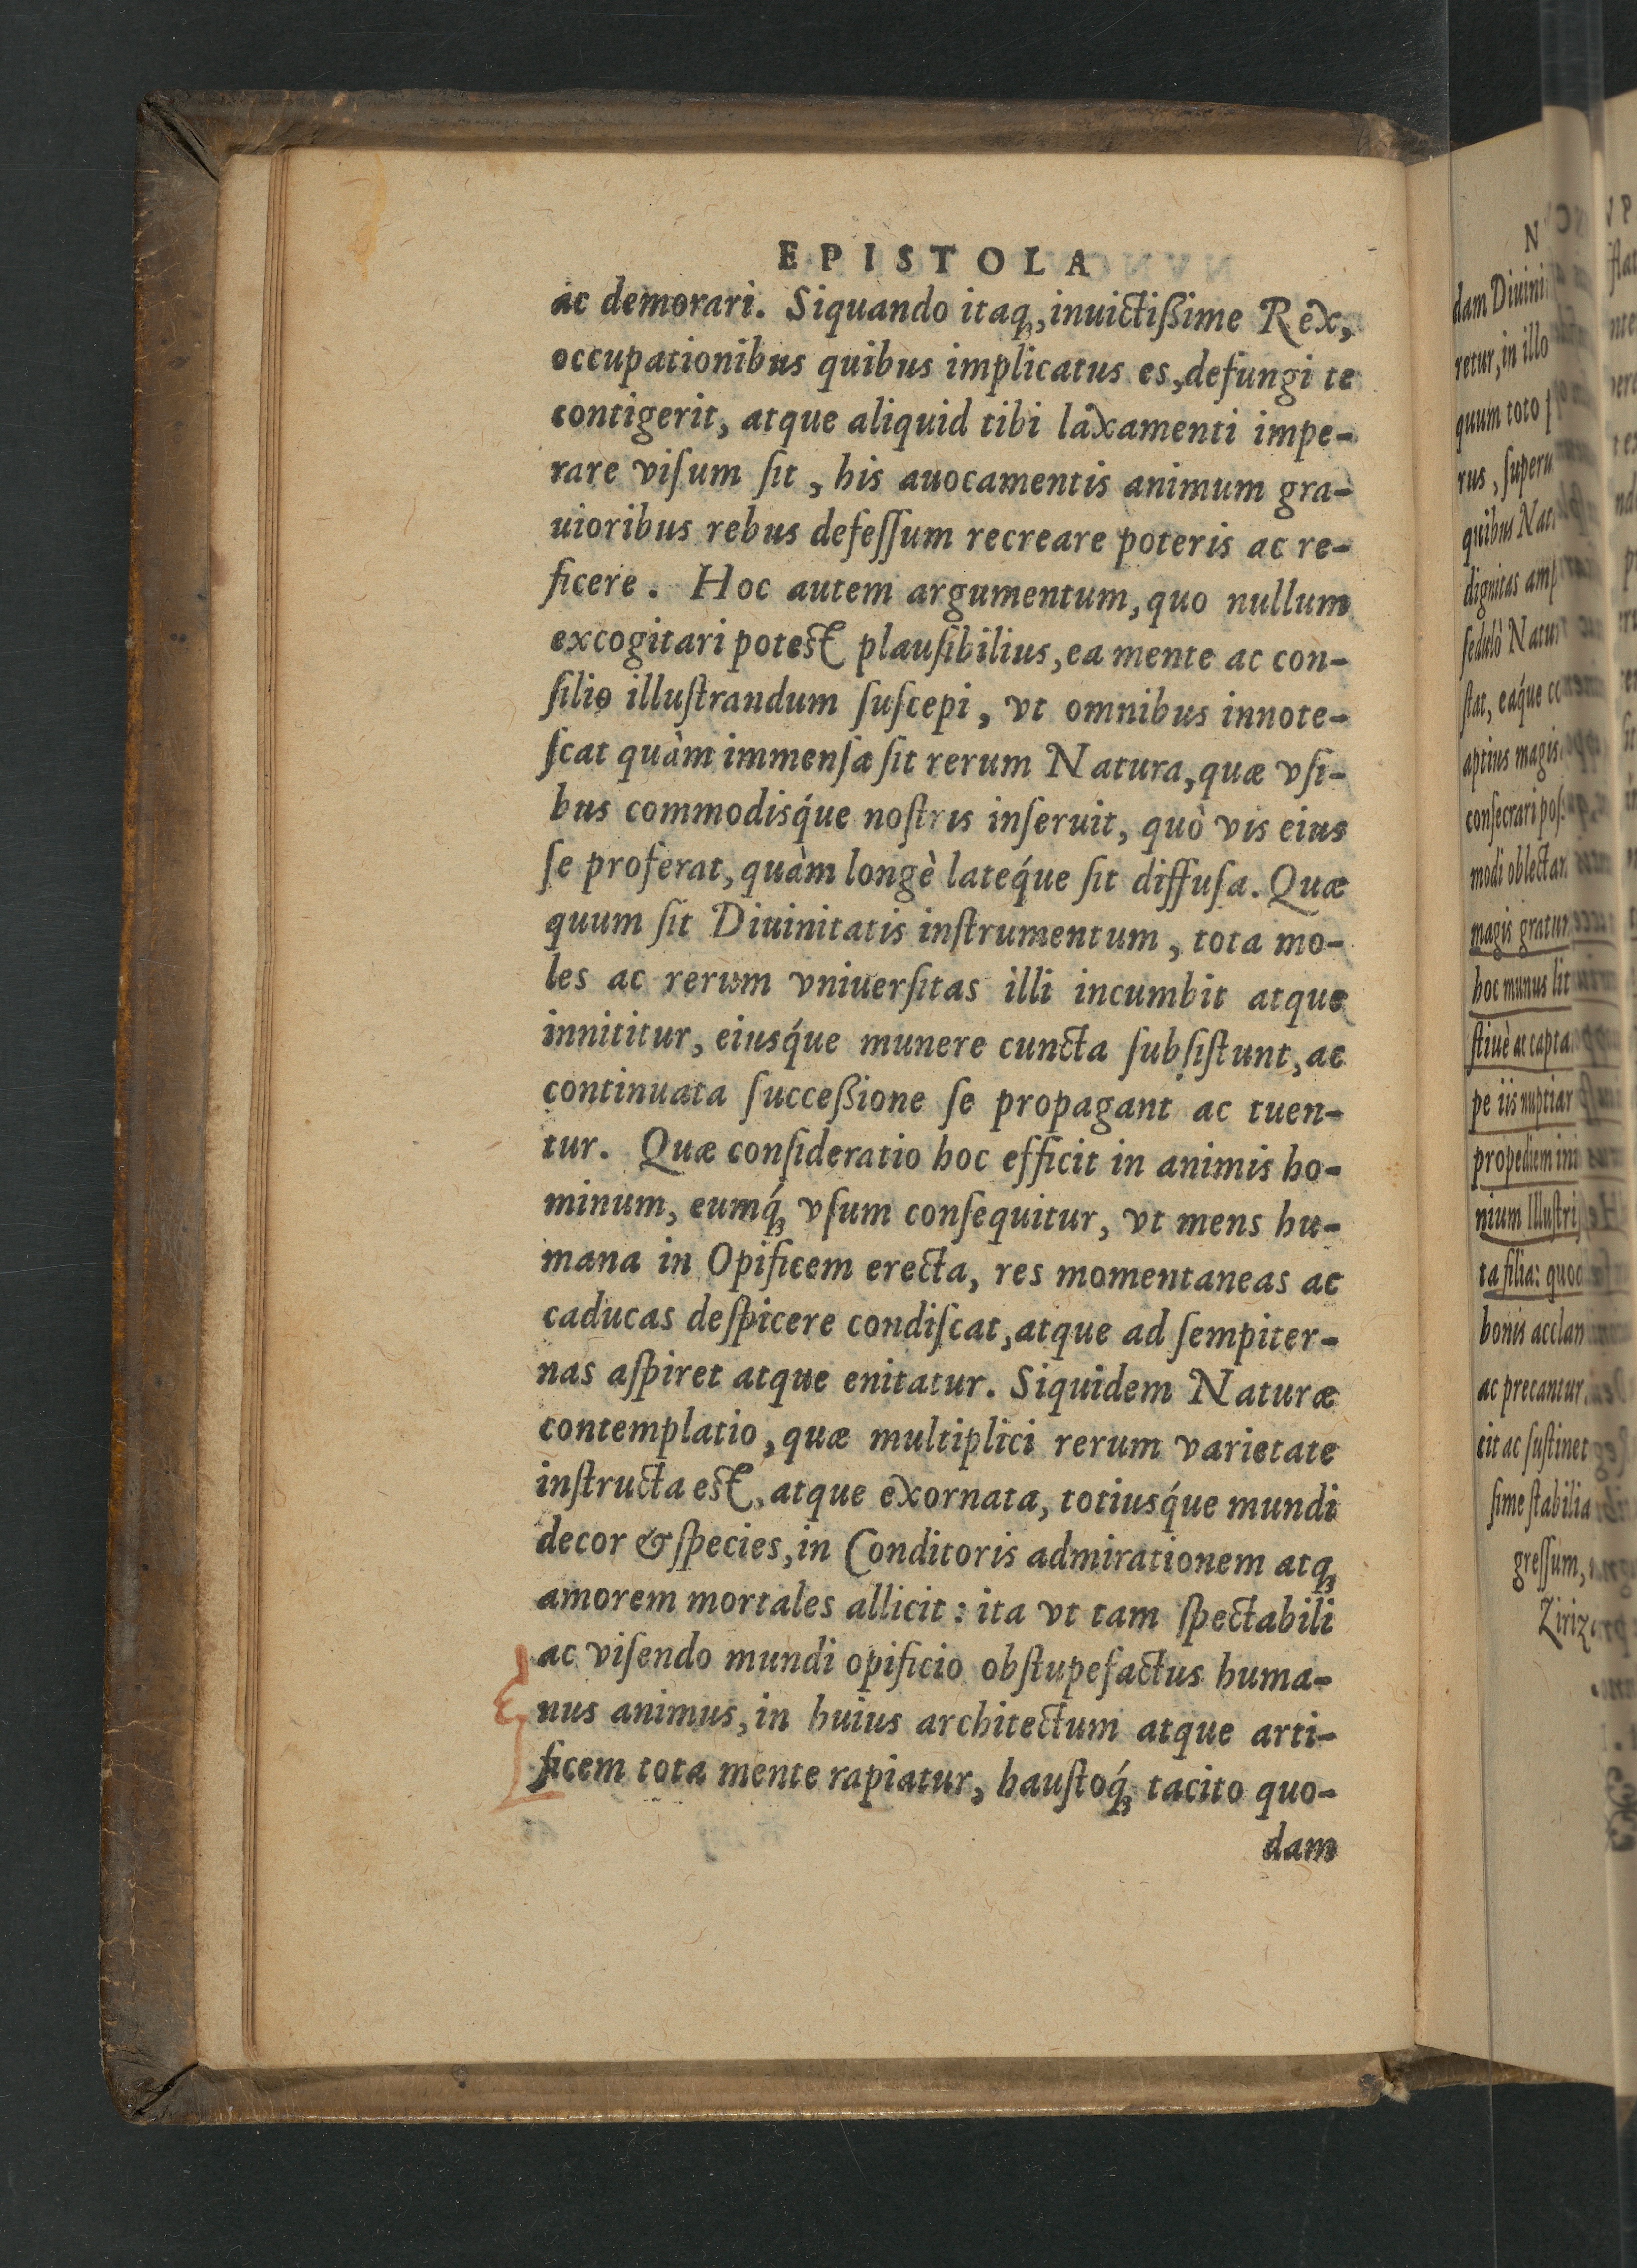 EPISTOLA
ac demorari. Siquando itaqꝫ, inuictißime Rex,
occupationibus quibus implicatus es, defungi te
contigerit, atque aliquid tibi laxamenti impe-
rare viſum ſit, his auocamentis animum gra-
uioribus rebus defeſſum recreare poteris ac re-
ficere. Hoc autem argumentum, quo nullum
excogitari potest plauſibilius, ea mente ac con-
ſilio illuſtrandum ſuſcepi, vt omnibus innote-
ſcat quàm immenſa ſit rerum Natura, quæ vſi-
bus commodisq́ue noſtris inſeruit, quò vis eius
ſe proferat, quàm longè lateq́ue ſit diffuſa. Quæ
quum ſit Diuinitatis inſtrumentum, tota mo-
les ac rerum vniuerſitas illi incumbit atque
innititur, eiusq́ue munere cuncta ſubſiſtunt, ac
continuata ſucceßione ſe propagant ac tuen-
tur. Quæ conſideratio hoc efficit in animis ho-
minum, eumq́ꝫ vſum conſequitur, vt mens hu-
mana in Opificem erecta, res momentaneas ac
caducas deſpicere condiſcat, atque ad ſempiter-
nas aſpiret atque enitatur. Siquidem Naturæ
contemplatio, quæ multiplici rerum varietate
inſtructa est, atque exornata, totiusq́ue mundi
decor & ſpecies, in Conditoris admirationem atqꝫ
amorem mortales allicit: ita vt tam ſpectabili
ac viſendo mundi opificio obſtupefactus huma-
nus animus, in huius architectum atque arti-
ficem tota mente rapiatur, hauſtoq́ꝫ tacito quo-
dam
dam Diuini
retur, in illo
quum toto
rus, ſuperu
quibus Nat
dignitas amp
ſedulò Natur
ſtat, eaq́ue co
aptius magis
conſecrari poſ
modi oblectan
magis gratum
hoc munus lit
ſtiuè ac capta
pe iis nuptiar
propediem ini
nium Illuſtriſ
ta filia: quod
bonis acclam
ac precantur
cit ac ſuſtinet
ſime ſtabilia
greſſum,
Ziriz